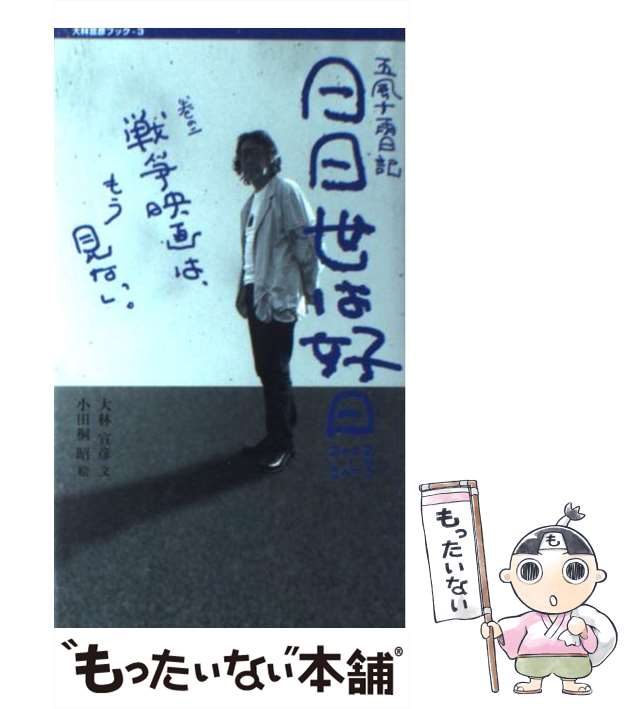 大林宣彦ブック・3
五風十雨日記
日日世は好日
巻の二
戦争映画は、
もう
見ない。
大林宣彦 文
小田桐 昭 絵
"もったいない"本舗®
もったいない
も